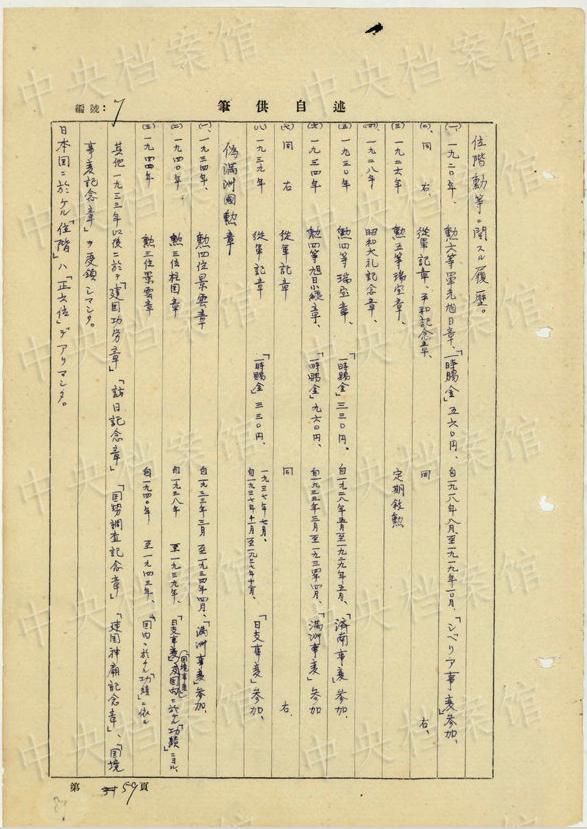 編號：7
筆供自述
位階勳等ニ関スル履歴。
(一)、一九二〇年、勲六等単光旭日章、「一時賜金」五六〇円、自一九一八年八月、至一九一九年一〇月、「シベリア事変」参加、
(二)、同右、従軍記章、平和記念章、同右、
(三)、一九二六年 勲五等瑞宝章、定期敍勲
(四)、一九二八年 昭和大礼記念章、
(五)、一九三〇年 勲四等瑞宝章、「一時賜金」三三〇円。自一九二八年五月至一九二九年五月、「済南事変」参加、
(六)、一九三四年 勲四等旭日小綬章、「一時賜金」九六〇円、自一九三二年三月至一九三四年四月、「満洲事変」参加
(七)、同右 従軍記章 同右、
(八)、一九三九年 従軍記章 「一時賜金」三三〇円、一九三七年七月、「日支事変」参加、
偽満洲國勲章
(一)、一九三四年、勲四位景雲章 自一九三二年三月至一九三四年四月、「満洲事変」参加、
(二)、一九四〇年、勲三位柱国章 自一九三八年至一九三九年、「日支事変」「国境事変」国内ニ於ケル「功績」ニヨル、
(三)、一九四四年 勲二位景雲章 自一九四〇年至一九四三年、「国内ニ於ケル功績」ニ依ル
其他一九三三年以後ニ於テ「建国功労章」「訪日記念章」「国勢調査記念章」「建国神廟記念章」、「国境
事変記念章」ヲ受領シマシタ。
日本国ニ於ケル「位階」ハ「正六位」デアリマシタ。
第59頁
中央档案馆